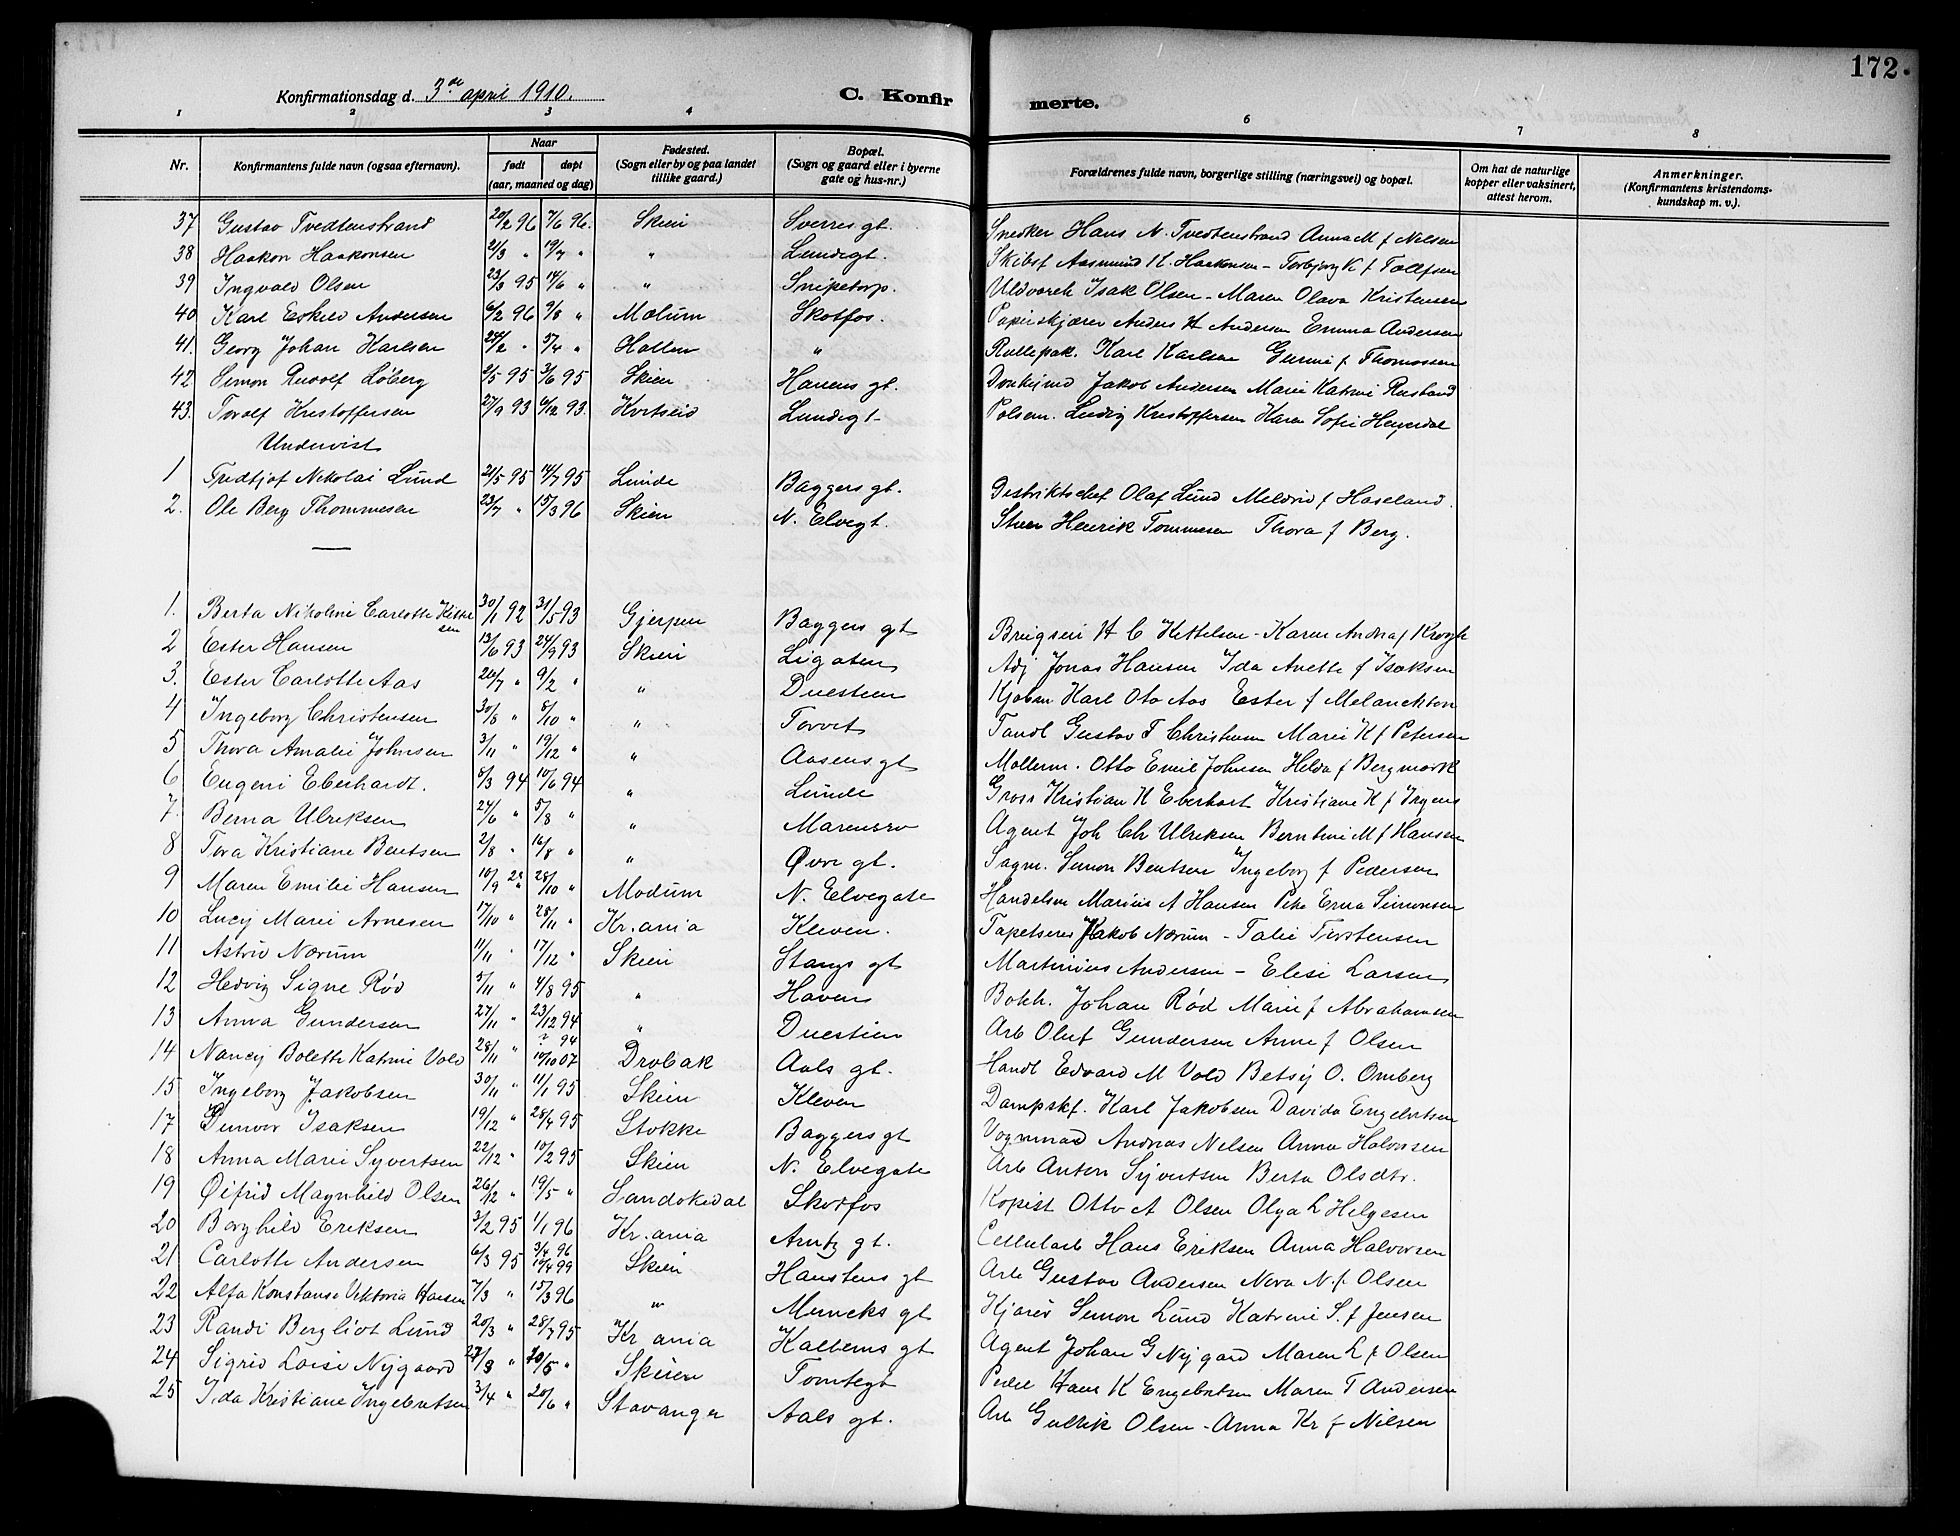 172.
Konfirmationsdag d. 3die april 1910.
C. Konfirmerte.
1 2 3 4 6 7 8
Nr. Konfirmantens fulde navn (ogsaa efternavn). Naar født døpt (aar, maaned og dag) Fødested. (Sogn eller by og paa landet tillike gaard.) Bopæl. (Sogn og gaard eller i byerne gate og hus-nr.) Forældrenes fulde navn, borgerlige stilling (næringsvei) og bopæl. Om hat de naturlige kopper eller vaksinert, attest herom. Anmerkninger. (Konfirmantens kristendoms-kundskap m. v.).
37 Gustav Tvedtenstrand 20/2 96 7/6 96. Skien Sverres gt. Snedker Hans N. Tvedtenstrand Anna M f Nilsen
38 Haakon Haakonsen 21/3 " 19/7 " " Lundegt. Skibsf Aasmund H. Haakonsen - Torbjørg K f Tollefsen
39 Ingvald Olsen 23/3 95 14/6 " " Snipetorp. Uldvareh Isak Olsen - Maren Olava Kristensen
40 Karl Eskild Andersen 6/2 96 9/8 " Mælum Skotfos. Papirskjærer Anders H Andersen Emma Andersen
41. Georg Johan Karlsen 24/2 " 5/4 " Hollen " Rullepak. Karl Karlsen Gurine f Thomassen
42 Simon Rudolf Løberg 2/5 95 3/6 95 Skien Havens gt. Jakob Andersen Marie Katrine Rustand
43. Torolf Kristoffersen 27/9 93 6/12 93. Kvitseid Lundegt - Polsem. Ludvig Kristoffersen Karen Sofie Heyerdal
Undervist
1 Fredtjof Nikolai Lund 21/5 95 14/7 95 Lunde Baggers gt. Destriktschef Olaf Lund Meldrid f Haseland.
2. Ole Berg Thommesen 23/7 " 15/3 96 Skien N. Elvegt. Stuer Henrik Tommesen Thora f Berg.
1. Berta Nikoline Carlotte Kittelsen 30/1 92 31/5 93 Gjerpen Baggers gt Brugseii H C Kettelsen - Karen Andrea f Krogh
2 Ester Hansen 13/6 93 24/9 93 Skien Ligaten Adj Jonas Hansen Ida Anette f Isaksen
3. Ester Carlotte Aas 26/7 " 9/2 " " Duestien Kjøbm Karl Oto Aas Ester f Melanckton
4 Ingeborg Christensen 30/8 " 8/10 " " Torvet Tandl Gustav F Christensen Marie K f Petersen
5 Thora Amalie Johnsen 3/11 " 19/12 " " Aasens gt Mollerm. Otto Emil Johnsen Helda f Bergmark
6 Eugeni Eberhardt. 5/3 94 10/6 94 " Lunde Gross Kristian H Eberhart Kristiane H f Irgens
7. Berna Ulriksen 24/6 " 5/8 " " Marensro Agent Joh Chr Ulriksen Berntine M f Hansen
8 Tora Kristiane Bentsen 2/8 " 16/8 " " Øvre gt. Sagm. Simon Bentsen Ingeborg f Pedersen
9 Maren Emilie Hansen 10/9 " 28/10 " Modum N. Elvegate Handelsm Marius A Hansen Erna Simonsen
10 Lucy Marie Arnesen 17/10 " 28/11 " Kr.ania Kleven. Tapetserer Jakob Nærum - Talie Torstensen
11 Astrid Nærum 11/11 " 17/12 " Skien Stangs gt Martinius Andersen - Elise Larsen
12 Hedvig Signe Rød 5/11 " 4/8 95 " Haven Bokh. Johan Rød Marie f Abrahamsen
13 Anna Gundersen 27/11 " 23/12 94 " Duestien Arb Oluf Gundersen Anne f Olsen
14 Nancy Bolette Katrine Vold 28/11 " ? 94 10/10 07 Drøbak Aals gt. Handl Edvard M Vold Betsy O. Omberg
15 Ingeborg Jakobsen 30/11 " 11/1 95 Skien Kleven Dampskf. Karl Jakobsen Davida Engebretsen
17 Gunvor Isaksen 19/12 " 28/4 95 Stokke Baggers gt Vognmand Andreas Nelsen Anna Halvorsen
18 Anna Marie Syvertsen 22/12 " 10/2 95 Skien N. Elvegate Arb Anton Syvertsen Berta Olsdtr.
19 Øifrid Magnhild Olsen 26/12 " 19/5 " Sandøkedal Skotfos Kopist Otto A Olsen Olga L Helgesen
20 Borghild Eriksen 3/2 95 1/1 96 Kr.ania Arntz gt. Cellularb Hans Eriksen Anna Halvorsen
21 Carlotte Andersen 6/3 95 3/4 96 10/4 99 Skien Hanstens gt Arb Gustav Andersen Nora N. f Olsen
22 Alfa Konstanse Viktoria Hansen 7/3 " 15/3 96 " Muncks gt Hjørev Simon Lund Katrine S. f Jensen
23 Randi Bergliot Lund 20/3 " 28/7 95 Kr ania Kalbems gt Agent Johan G Nygard Maren L f Olsen
24 Sigrid Loise Nygaard 27/3 " 20/5 " Skien Tomtegt Hans K Engebretsen Maren T Andersen
25 Ida Kristiane Ingebretsen 3/4 " 20/6 " Stavanger Aals gt. Arb Gulrik Olsen - Anna Kr f Nilsen